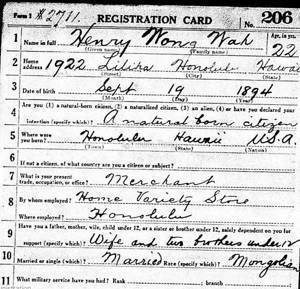 Form 1 #2711. REGISTRATION CARD No. 206
1 Name in full Henry Wong Wah Age, in yrs.
(Given name) (Family name) 22
2 Home address 1922 Liliha Honolulu Hawaii
(Street) (City) (State)
3 Date of birth Sept 19 1894
(Month) (Day) (Year)
4 Are you (1) a natural-born citizen, (2) a naturalized citizen, (3) an alien, (4) or have you declared your
intention (specify which)? A natural born citizen
5 Where were you born? Honolulu Hawaii U.S.A.
(Town) (State) (Nation)
6 If not a citizen, of what country are you a citizen or subject?
7 What is your present trade, occupation, or office? Merchant
8 By whom employed? Home Variety Store
Where employed? Honolulu
9 Have you a father, mother, wife, child under 12, or a sister or brother under 12, solely dependent on you for
support (specify which)? Wife and two brothers under 12
10 Married or single (which)? Married Race (specify which)? Mongolian
11 What military service have you had? Rank ; branch